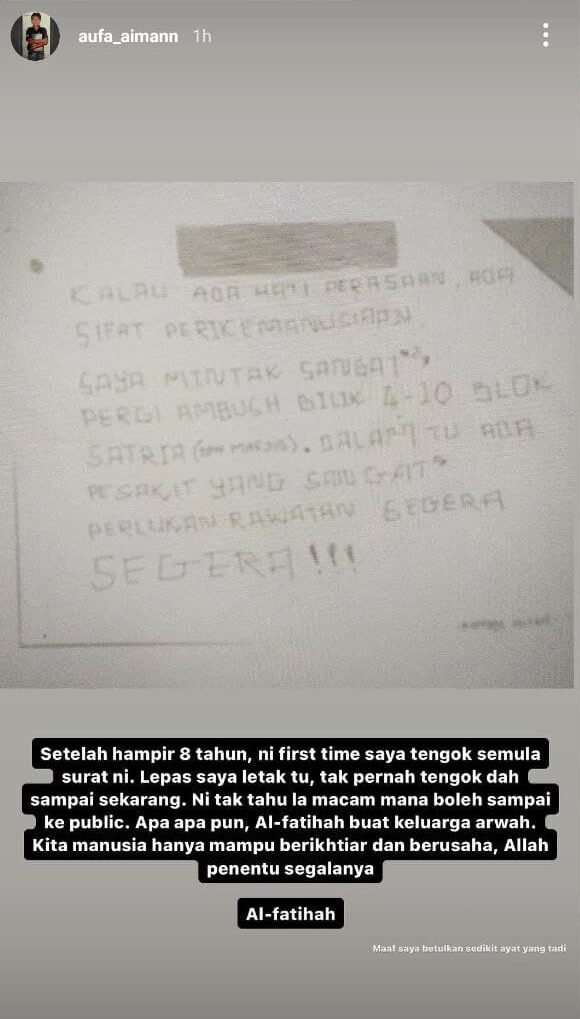 aufa_aimann 1h
KALAU ADA HATI PERASAAN, ADA
SIFAT PERIKEMANUSIAAN,
SAYA MINTAK SANGAT"²,
PERGI AMBUSH BILIK 4-10 BLOK
SATRIA (). DALAM TU ADA
PESAKIT YANG SANGAT²
PERLUKAN RAWATAN SEGERA
SEGERA!!!
Setelah hampir 8 tahun, ni first time saya tengok semula
surat ni. Lepas saya letak tu, tak pernah tengok dah
sampai sekarang. Ni tak tahu la macam mana boleh sampai
ke public. Apa apa pun, Al-fatihah buat keluarga arwah.
Kita manusia hanya mampu berikhtiar dan berusaha, Allah
penentu segalanya
Al-fatihah
Maaf saya betulkan sedikit ayat yang tadi